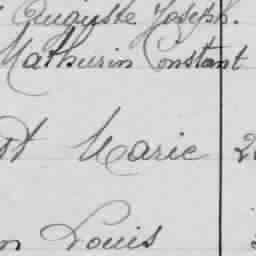 Auguste Joseph.
Mathurin Constant
Marie
Louis